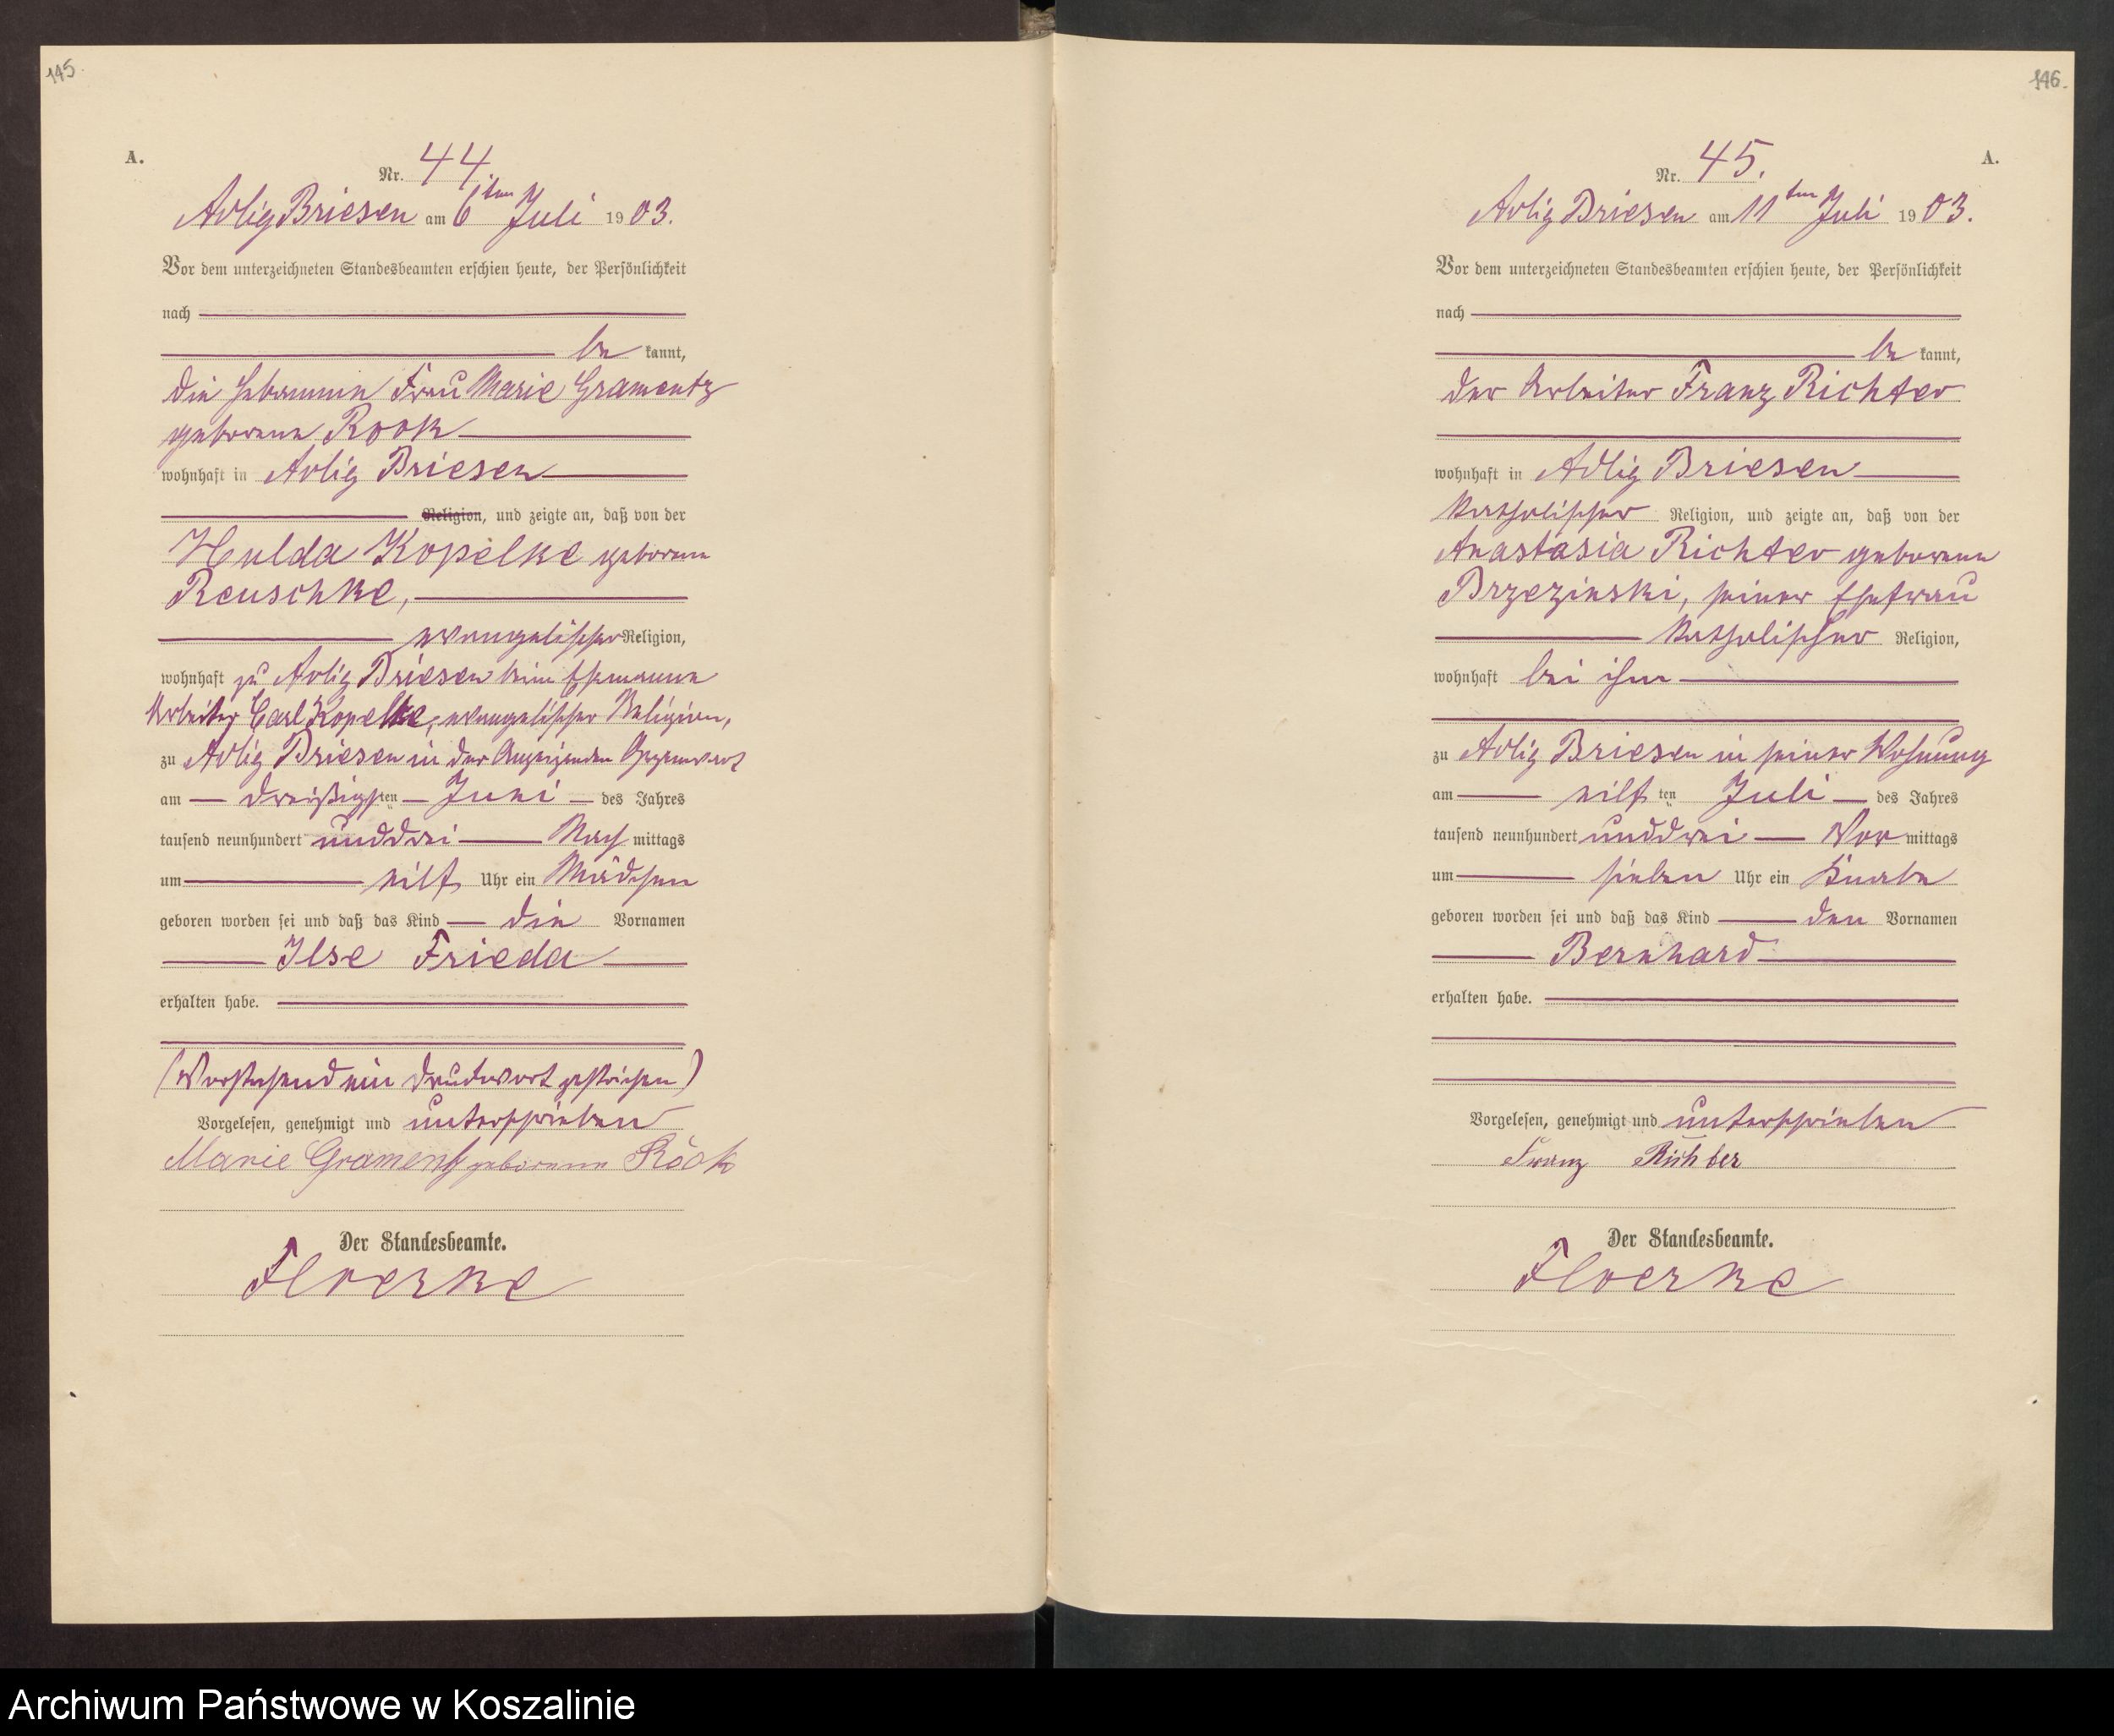 145.
A.
Nr. 44.
Adlig Briesen am 6ten Juli 1903.
Vor dem unterzeichneten Standesbeamten erschien heute, der Persönlichkeit
nach
be kannt,
die Hebamme Frau Marie Gramentz
geborene Rook
wohnhaft in Adlig Briesen
Religion, und zeigte an, daß von der
Hulda Kopelke geborene
Reuschke,
evangelischer Religion,
wohnhaft zu Adlig Briesen beim Ehemanne
Arbeiter Carl Kopelke, evangelischer Religion,
zu Adlig Briesen in der Anzeigenden Gegenwart
am dreißigsten Juni des Jahres
tausend neunhundert unddrei Nach mittags
um elf Uhr ein Mädchen
geboren worden sei und daß das Kind die Vornamen
Ilse Frieda
erhalten habe.
(Vorstehend ein Druckwort gestrichen)
Vorgelesen, genehmigt und unterschrieben
Marie Gramentz geborene Rook
Der Standesbeamte.
Floerke
146.
A.
Nr. 45.
Adlig Briesen am 11ten Juli 1903.
Vor dem unterzeichneten Standesbeamten erschien heute, der Persönlichkeit
nach
be kannt,
der Arbeiter Franz Richter
wohnhaft in Adlig Briesen
katholischer Religion, und zeigte an, daß von der
Anastasia Richter geborene
Brzezinski, seiner Ehefrau
katholischer Religion,
wohnhaft bei ihm
zu Adlig Briesen in seiner Wohnung
am elften Juli des Jahres
tausend neunhundert unddrei Vor mittags
um sieben Uhr ein Knabe
geboren worden sei und daß das Kind den Vornamen
Bernhard
erhalten habe.
Vorgelesen, genehmigt und unterschrieben
Franz Richter
Der Standesbeamte.
Floerke
Archiwum Państwowe w Koszalinie